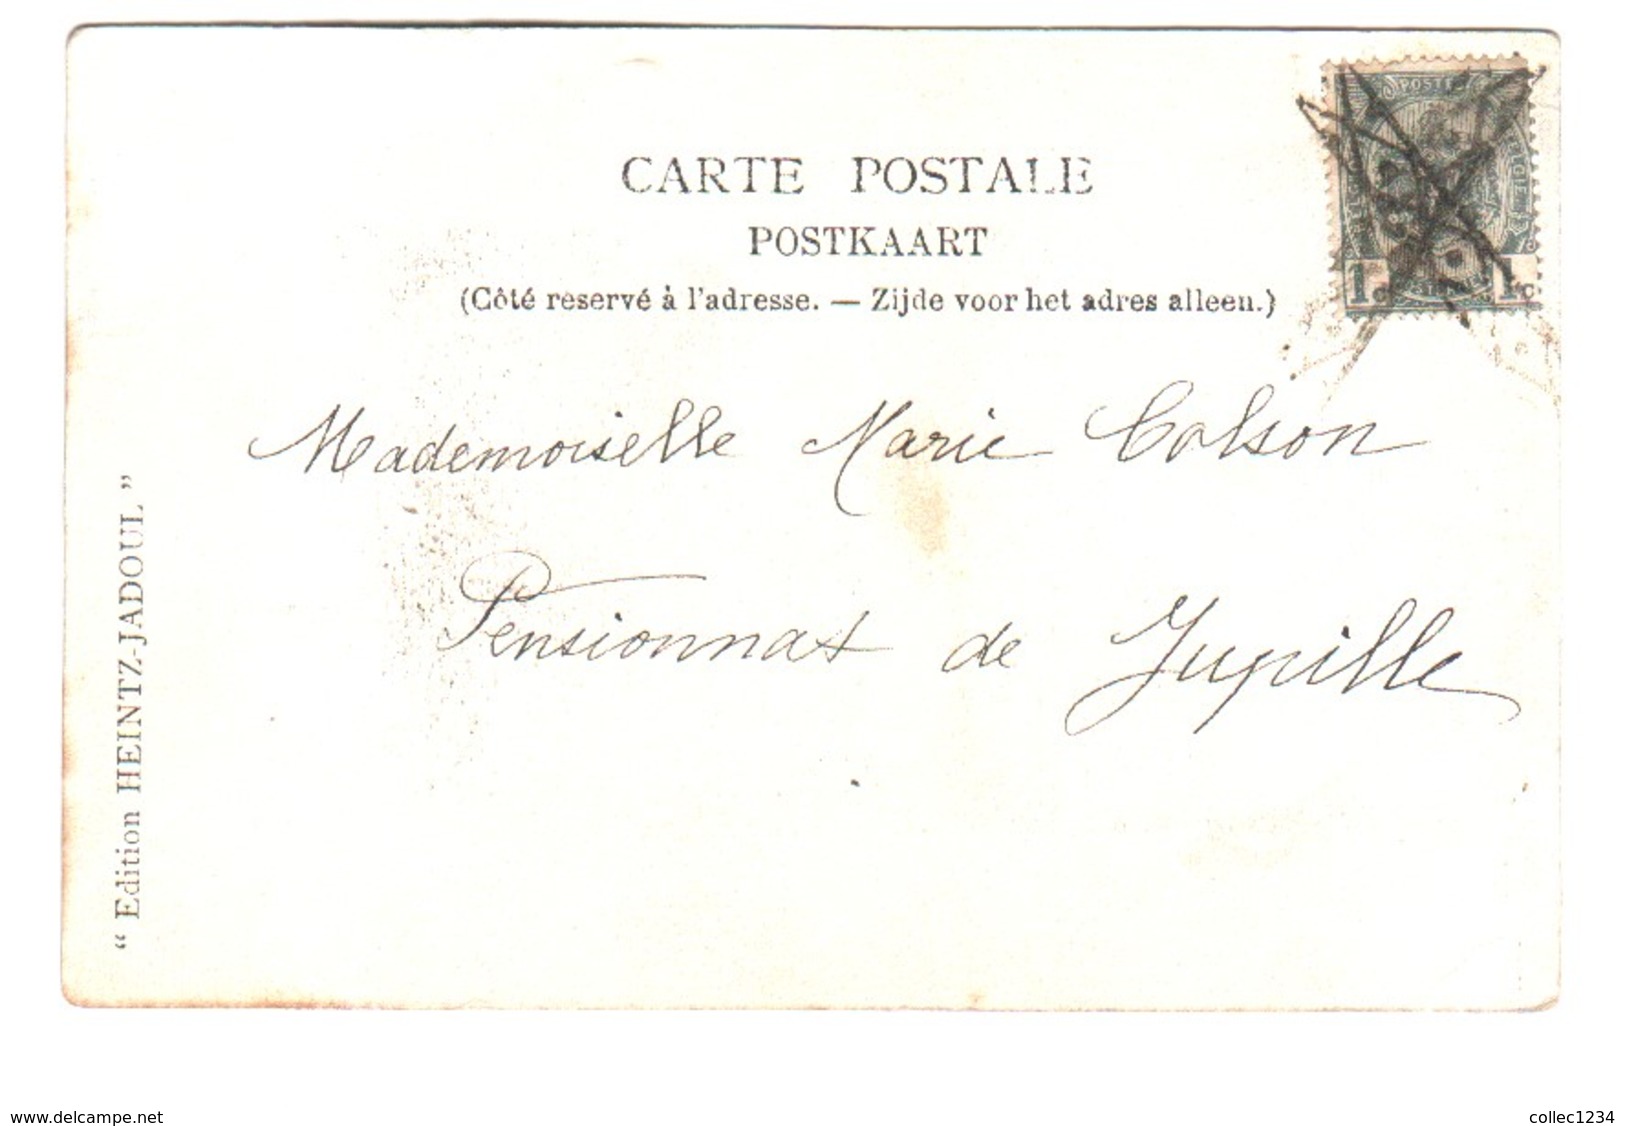 CARTE POSTALE
POSTKAART
(Côté reservé à l'adresse. — Zijde voor het adres alleen.)
POSTE
1 c 1 c
Mademoiselle Marie Colson
Pensionnat de Jupille
“ Edition HEINTZ-JADOUL ”
www.delcampe.net
collec1234